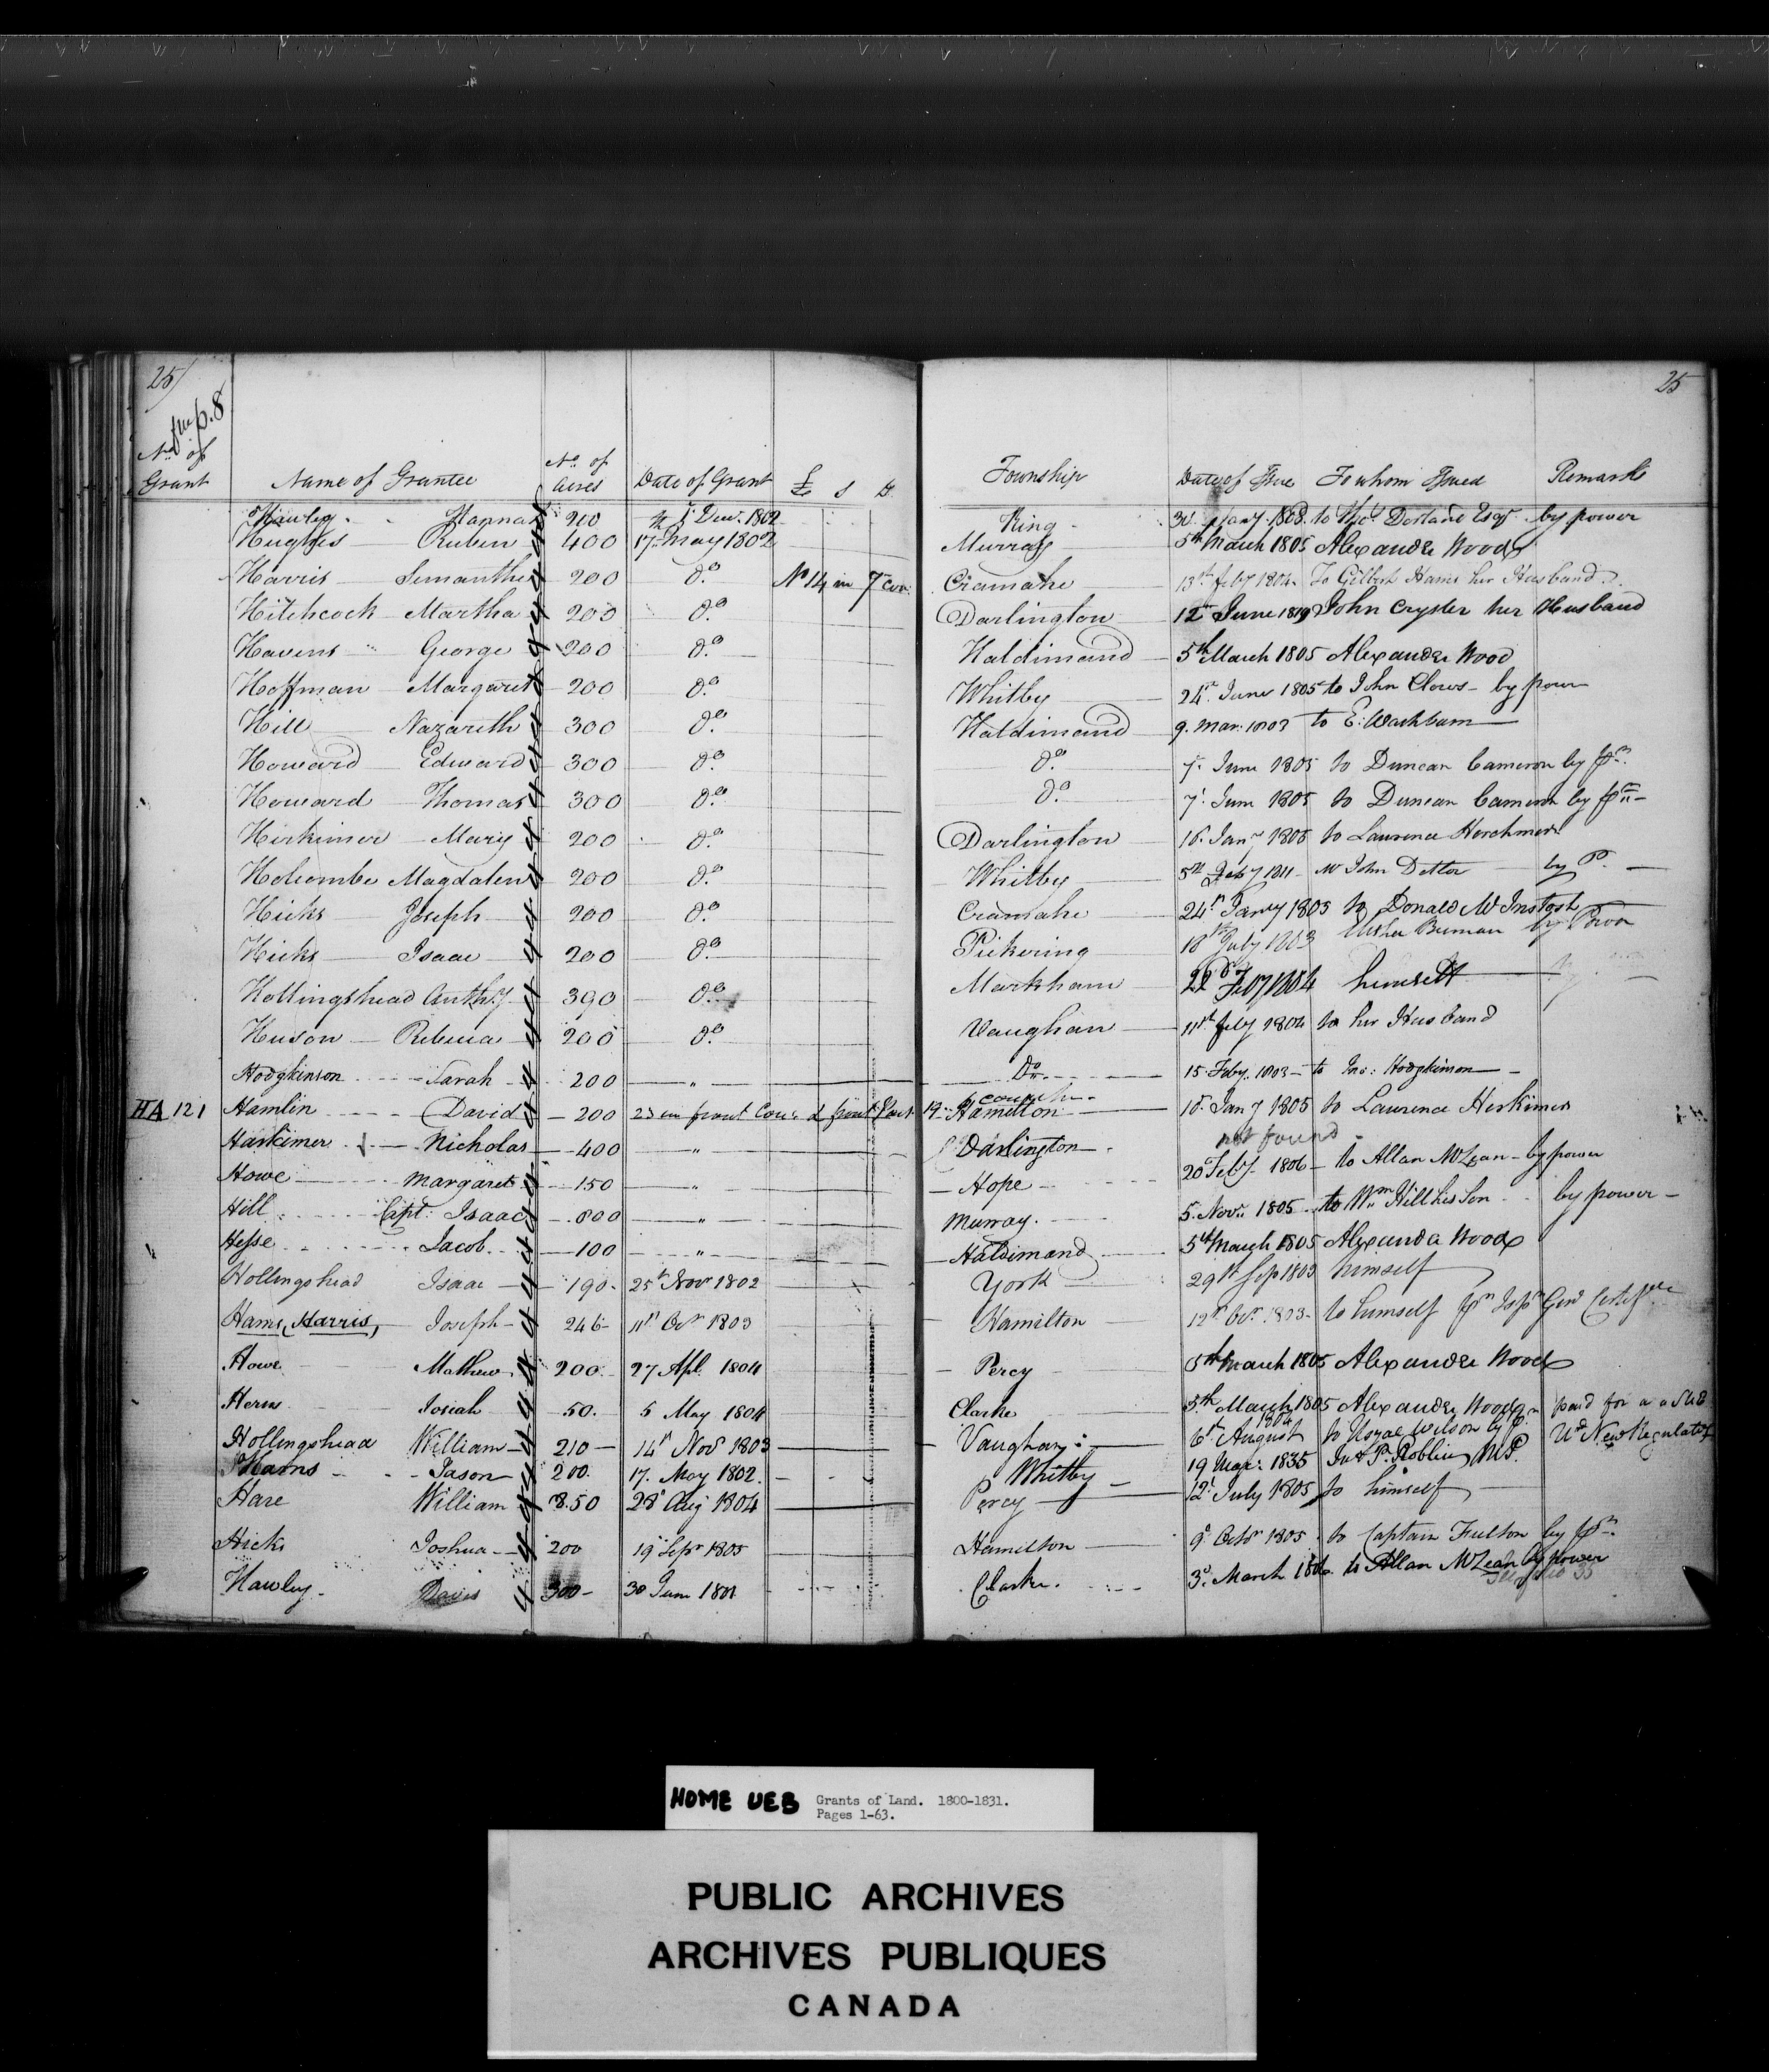 25
25
fm p. 8
No. of Grant Name of Grantee No. of Acres Date of Grant £ S D. Township Date of Issue To whom Issued Remarks
Hawley Hannah 200 1 Decr. 1802 King 1808 to Thos. Dorland Esqr. by power
Hughes Ruben 400 17 May 1802 Murray 5th March 1805 Alexander Wood
Harris Semantha 200 do. No 14 in 7 con. Cramahe 13th Feby 1804 To Gilbert Harris her Husband
Hitchcock Martha 200 do. Darlington 12th June 1819 John Cryster her Husband
Havens George 200 do. Haldimand 5th March 1805 Alexander Wood
Hoffman Margaret 200 do. Whitby 24th June 1805 to John Clows by power
Hill Nazareth 300 do. Haldimand 9. Mar. 1803 to E. Washburn
Howard Edward 300 do. do. 7. June 1805 to Duncan Cameron by pr.
Howard Thomas 300 do. do. 7. June 1805 to Duncan Cameron by pr.
Herkimer Mary 200 do. Darlington 16. Jany 1805 to Lawrence Herchmer
Holcombe Magdalen 200 do. Whitby 5th Feby 1811 John Detlor by P.
Hicks Joseph 200 do. Cramahe 24th Jany 1805 to Donald McIntosh
Hicks Isaac 200 do. Pickering 18th July 1803 Elisha Beman by Power
Hollingshead Anthy. 390 do. Markham 22d Feby 1804 himself
Huson Rebecca 200 do. Vaughan 11th Feby 1804 to her Husband
Hodgkinson Sarah 200 " Do. 15 Feby. 1803 to Jno. Hodgkinson
HA 121 Hamlin David 200 23 in front Con: & front Part 19. Hamilton 18. Jany 1805 to Lawrence Herkimer
Harkimer Nicholas 400 " Darlington not found
Howe Margaret 150 " Hope 20 Feby. 1806 to Allan McLean by power
Hill Capt. Isaac 800 " Murray. 5. Novr. 1805 to Wm. Hill his Son by power
Hesse Jacob 100 " Haldimand 5th March 1805 Alexander Wood
Hollingshead Isaac 190 25th Novr 1802 York 29th Sep 1803 himself
Hams, Harris, Joseph 246 11th Octr 1803 Hamilton 12th Octr. 1803 to himself pr. Inspr Genl Certife
Howe Mathew 200 27 Apl. 1804 Percy 5th March 1805 Alexander Wood
Herns Josiah 50. 5 May 1804 Clarke 5th March 1805 Alexander Wood paid for
Hollingshead William 210 14th Novr 1803 Vaughan 6th August 1804 to Royal Wilson by P. Ur. New Regulatn
Harns Jason 200. 17. May 1802. Whitby 19 Mar. 1835 Jno. P. Roblin M.P.
Hare William 850 28th Aug 1804 Percy 12th July 1805 to himself
Hicks Joshua 200 19 Sepr 1805 Hamilton 9th Octr 1805 to Captain Fulton by pr.
Hawley Davis 300 30 June 1801 Clarke. 3d. March 1806 to Allan McLean by power
HOME UEB Grants of Land. 1800-1831.
Pages 1-63.
PUBLIC ARCHIVES
ARCHIVES PUBLIQUES
CANADA